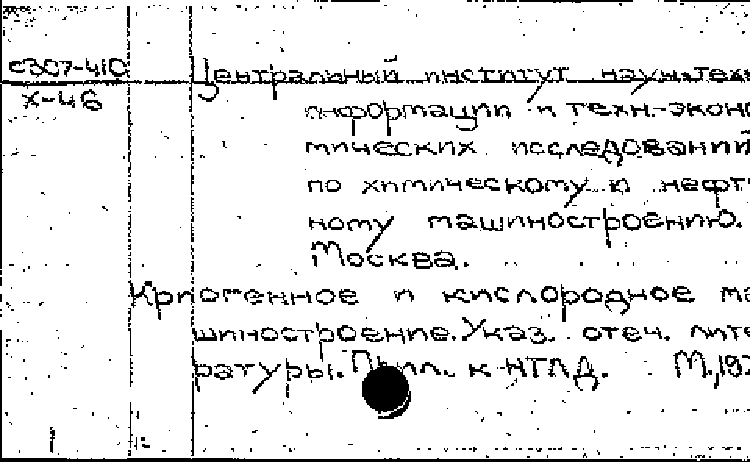 с307-410
х-46
Центральный институт научн.техн
информации и техн.-эконо
мических исследований
по химическому и нефт
ному машиностроению.
Москва.
Криогенное и кислородное ма
шиностроение. Указ. отеч. лите
ратуры. к НТЛД. М.,197